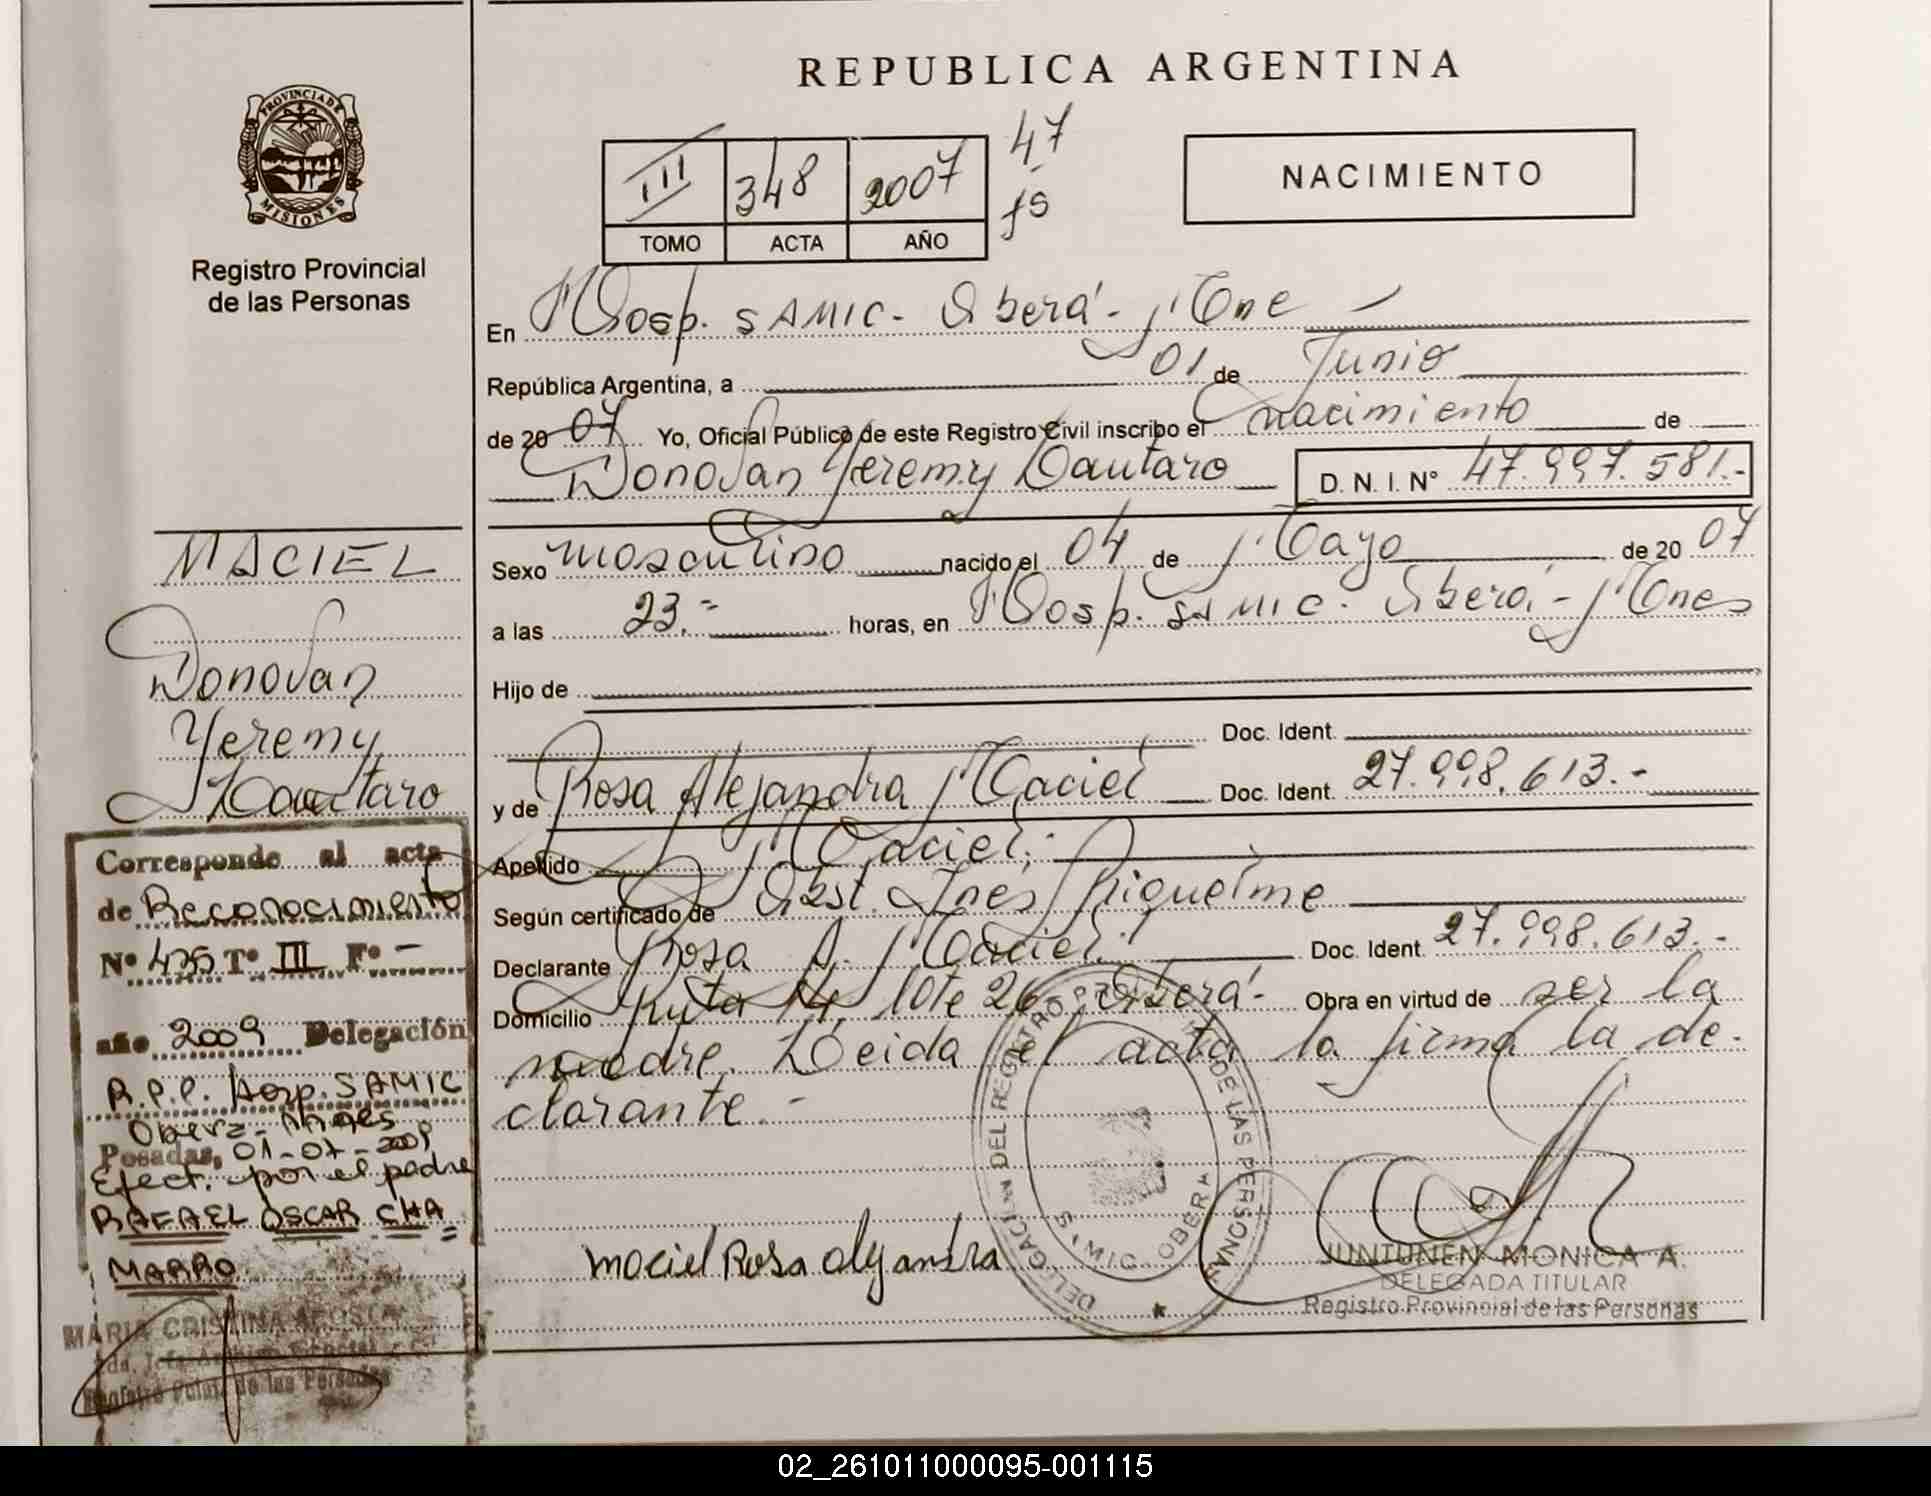 REPUBLICA ARGENTINA
PROVINCIA DE
MISIONES
Registro Provincial
de las Personas
III 348 2007 47
TOMO ACTA AÑO fs
NACIMIENTO
En Hosp. SAMIC - Oberá - Mne
República Argentina, a 01 de Junio
de 2007 Yo, Oficial Público de este Registro Civil inscribo el nacimiento de
Donovan Yeremy Lautaro D. N. I. Nº 47.997.581.-
Sexo masculino nacido el 04 de Mayo de 2007
a las 23.- horas, en Hosp. SAMIC. Oberá - Mnes
Hijo de
Doc. Ident.
y de Rosa Alejandra Maciel Doc. Ident. 27.998.613.-
Apellido Maciel.
Según certificado de Obst. Inés Riquelme
Declarante Rosa A. Maciel. Doc. Ident. 27.998.613.-
Domicilio Ruta 14, lote 26, Oberá - Obra en virtud de ser la
madre. Leida el acta la firma la de-
clarante.-
Maciel Rosa Alejandra
DELEGACION DEL REGISTRO PROVINCIAL DE LAS PERSONAS
SAMIC OBERA
JUNTUNEN MONICA A.
DELEGADA TITULAR
Registro Provincial de las Personas
MACIEL
Donovan
Yeremy
Lautaro
Corresponde al acta
de Reconocimiento
Nº 475 Tº III Fº -
año 2009 Delegación
R.P.P. Hosp. SAMIC
Oberá - Mnes
Posadas, 01-07-2009
Efect. por el padre
RAFAEL OSCAR CHA=
MARRO
MARIA CRISTINA ACOSTA
Registro de las Personas
02_261011000095-001115